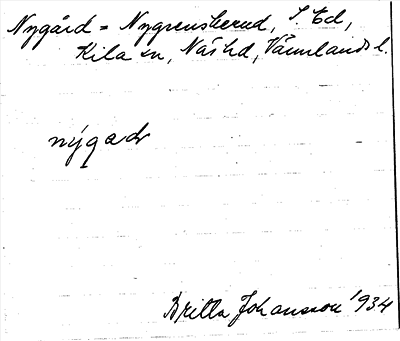 Nygård = Nygrensherud, S. Ed,
Kila sn, Näs hd, Värmlands l.
nýgaḍ
Britta Johansson 1934